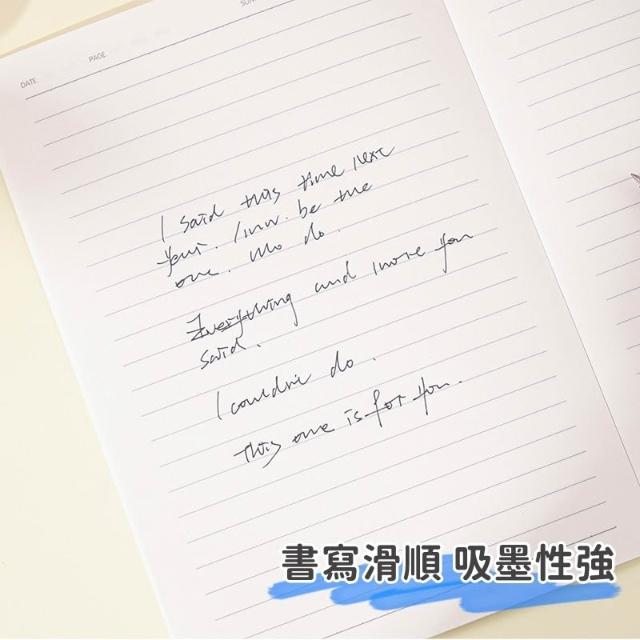 DATE: PAGE SUN
I said this time next
year. be the
one. who do.
Everything and more you
said.
I couldn't do.
This one is for you.
書寫滑順 吸墨性強